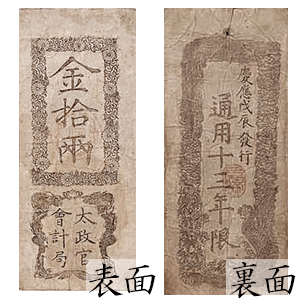 金拾兩
太政官
會計局
表面
慶應戊辰發行
通用十三年限
裏面